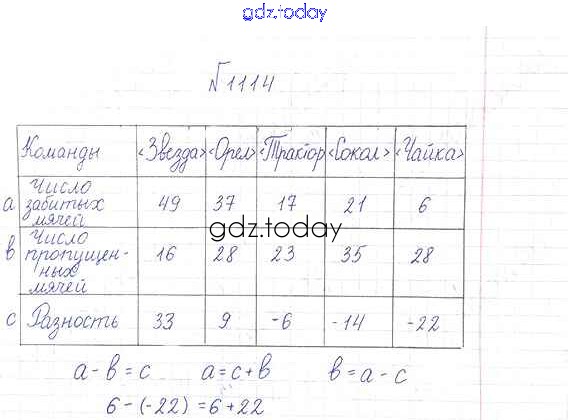 gdz.today
№1114
Команды «Звезда» «Орел» «Трактор «Сокол» «Чайка»
а Число забитых мячей 49 37 17 21 6
gdz.today
в Число пропущен-ных мячей 16 28 23 35 28
с Разность 33 9 -6 -14 -22
а - в = с а = с + в в = а - с
6 - (-22) = 6 + 22